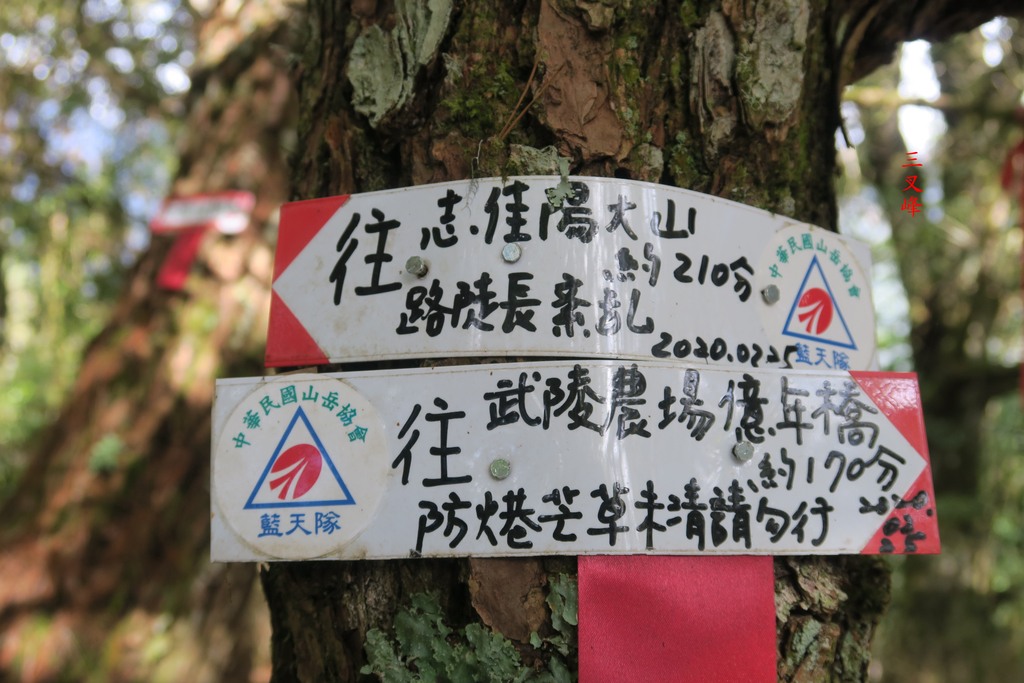 三叉峰
往 志.佳陽大山
約210分
路陡長紊亂
2020.0225
中華民國山岳協會
藍天隊
中華民國山岳協會
藍天隊
往 武陵農場億年橋
約170分
防火巷芒草未清請勿行
2020.
02
25